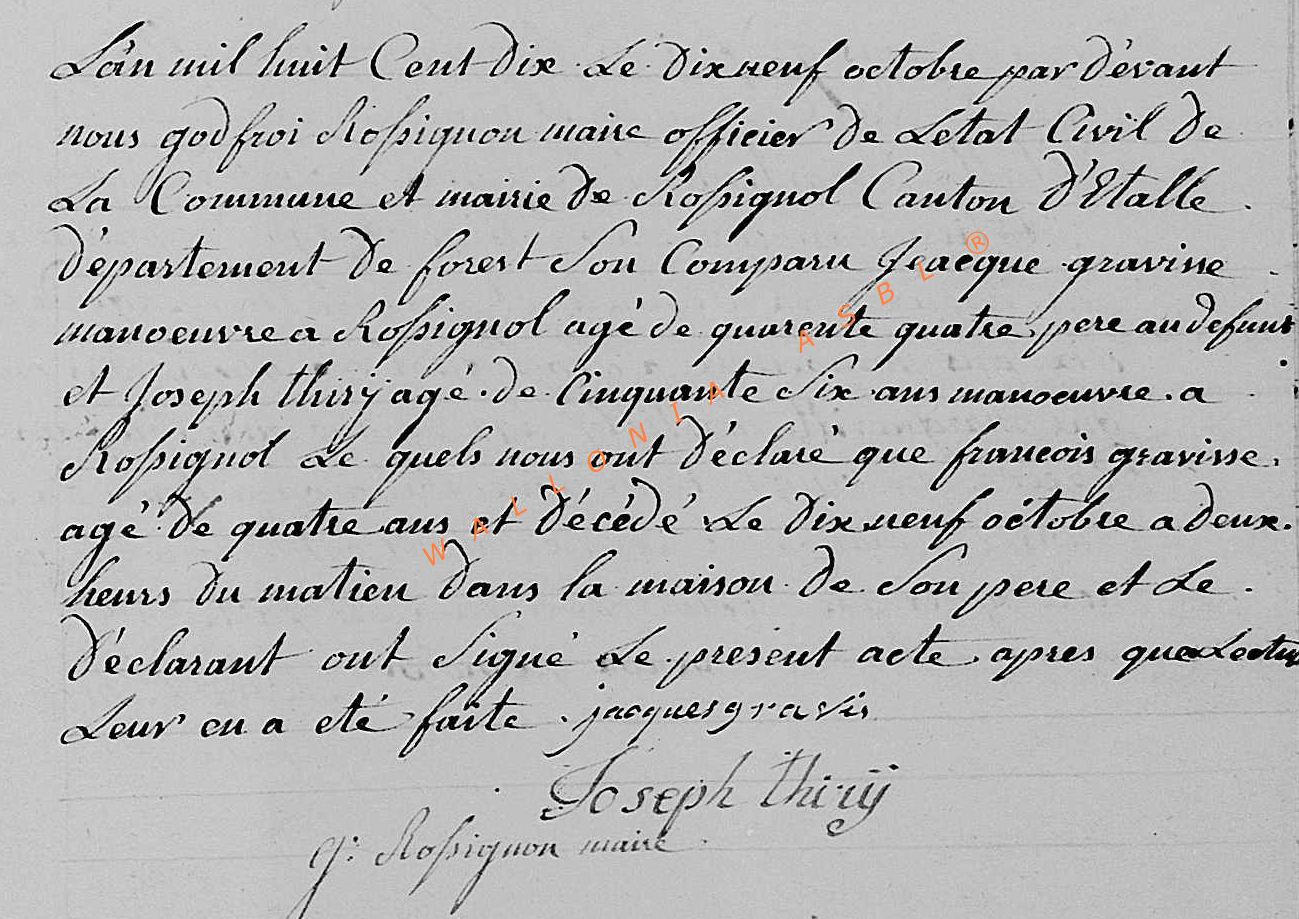 L'an mil huit Cent dix Le dixneuf octobre par dévant
nous godfroi Rossignon maire officier de Letat Civil de
La Commune et mairie de Rossignol Canton d'Etalle
département de forest Son Comparu Jeacque gravisse
manoeuvre a Rossignol agé de quarente quatre pere au defunt
et Joseph thirÿ agé de Cinquante Six ans manoeuvre a
Rossignol Le quels nous ont déclaré que francois gravisse
agé de quatre ans et décédé Le dix neuf octobre a deux
heurs du matien dans la maison de Son pere et Le
déclarant ont Signé Le présent acte apres que Lectur
Leur en a eté faite jacques gravis
Joseph thirÿ
g: Rossignon maire
WALLONIA ASBL ®